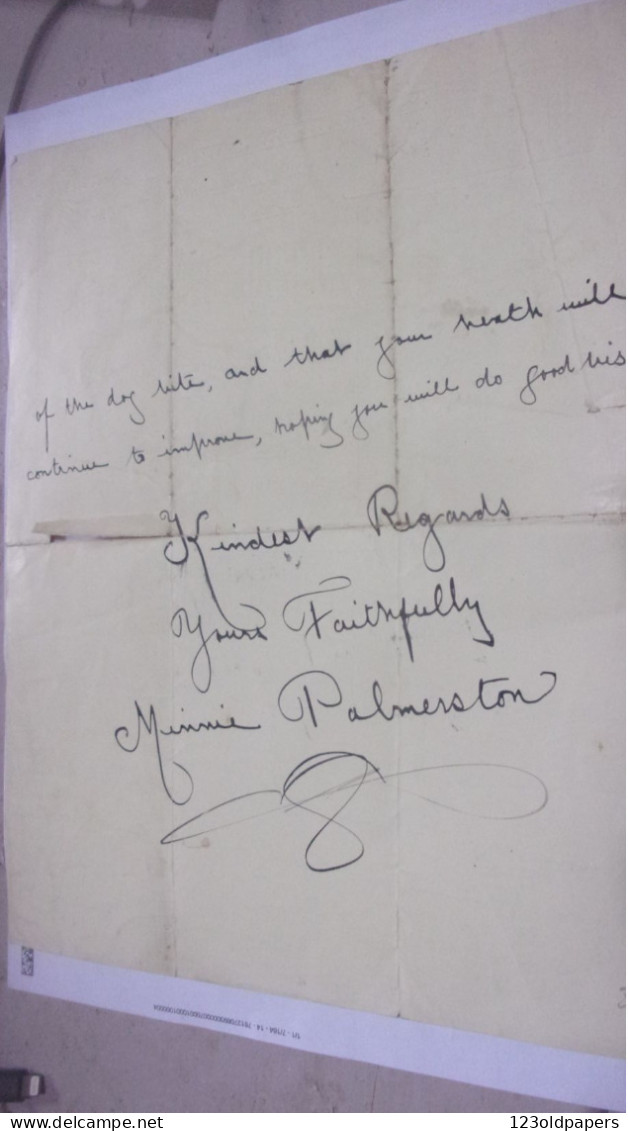 of the dog bite, and that your health will
continue to improve, hoping you will do good
Kindest Regards
Yours Faithfully
Minnie Palmerston
123oldpapers